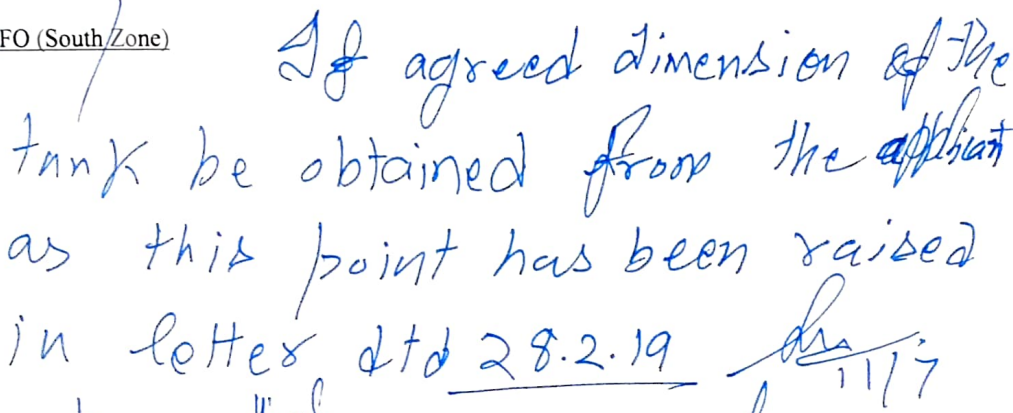 FO (South Zone)
If agreed dimension of the
tank be obtained from the applicant
as this point has been raised
in letter dtd 28.2.19
11/7